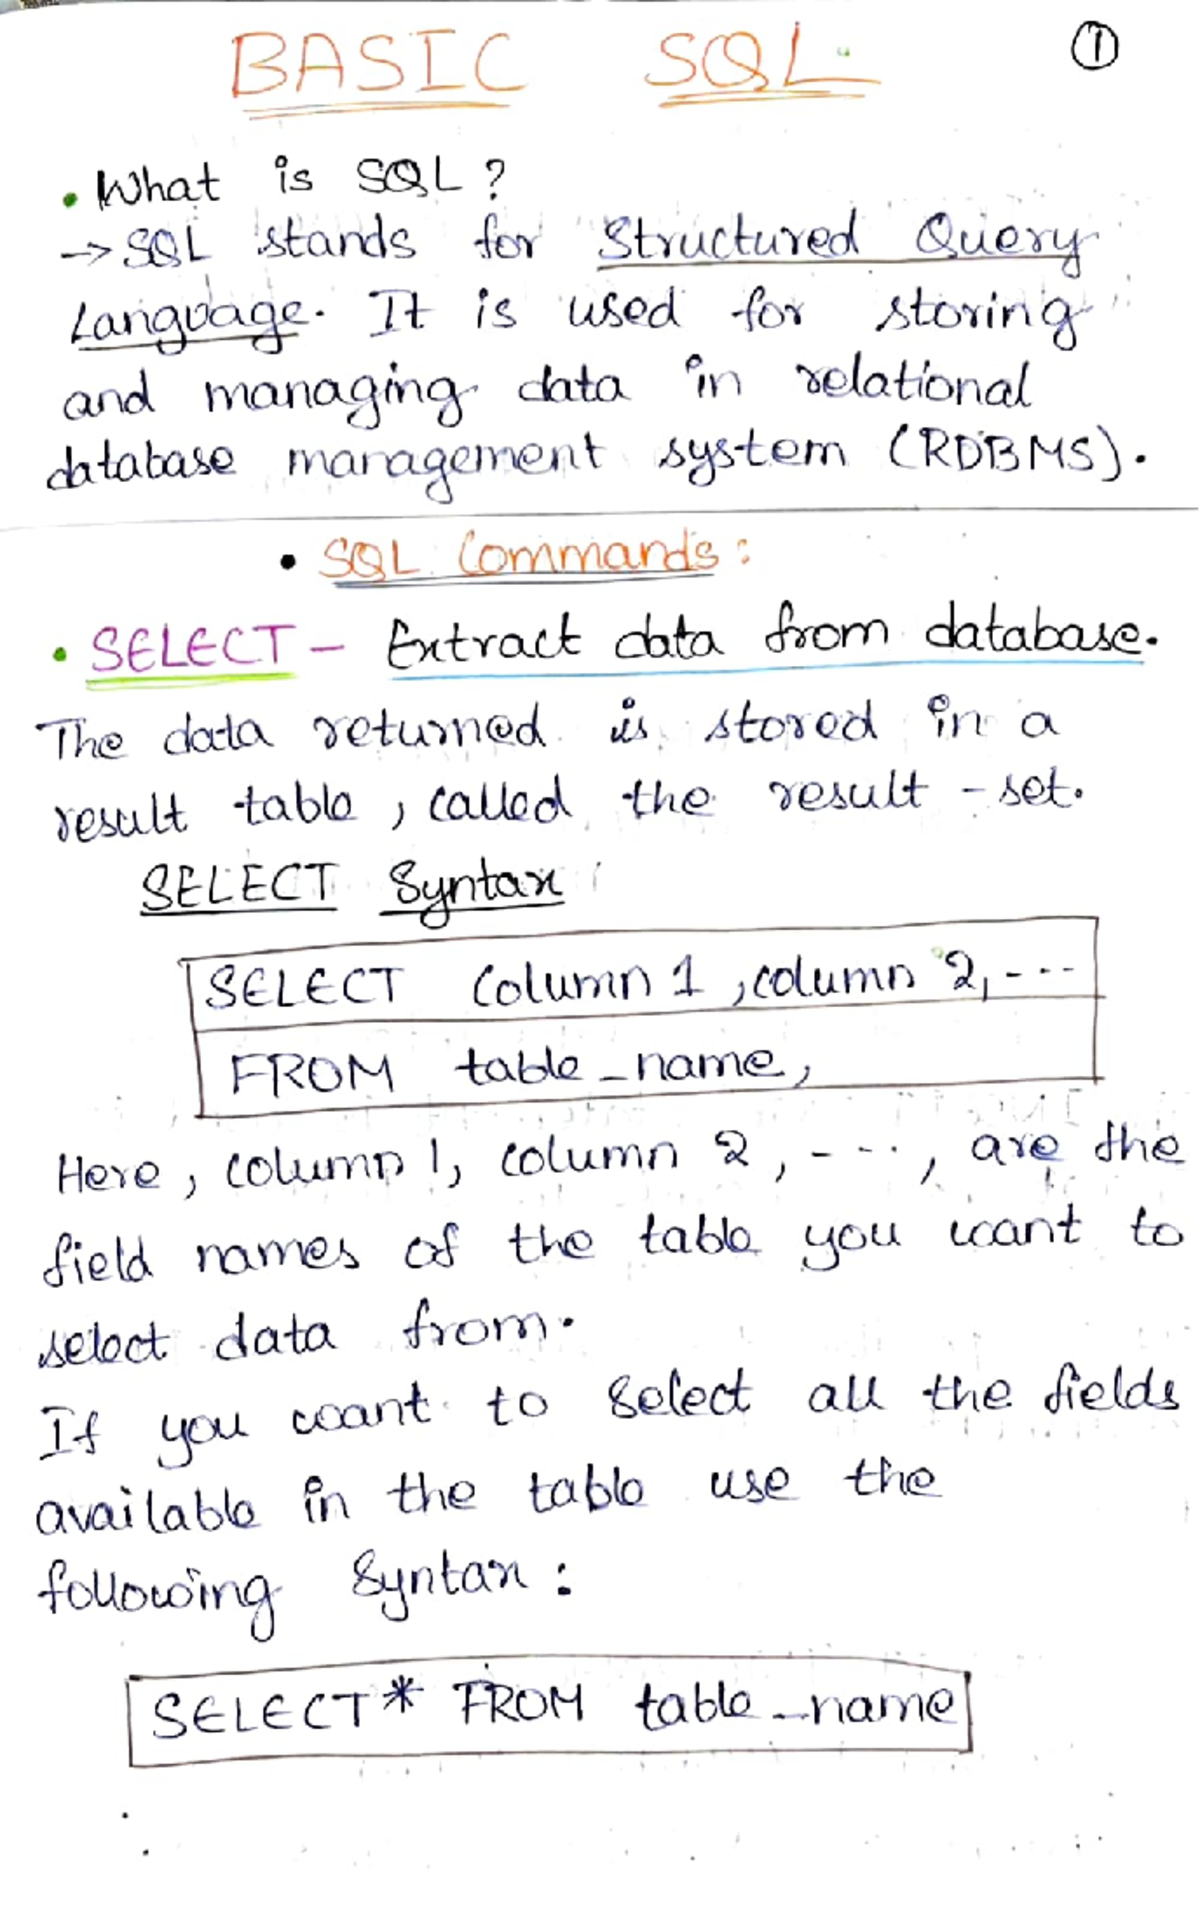 BASIC SQL. ①
• What is SQL?
→ SQL stands for Structured Query
Language. It is used for storing
and managing data in relational
database management system (RDBMS).
• SQL Commands:
• SELECT - Extract data from database.
The data returned is stored in a
result table, called the result-set.
SELECT Syntax
SELECT Column 1, column 2, ...
FROM table_name,
Here, column 1, column 2, ..., are the
field names of the table you want to
select data from.
If you want to select all the fields
available in the table use the
following Syntax:
SELECT * FROM table_name